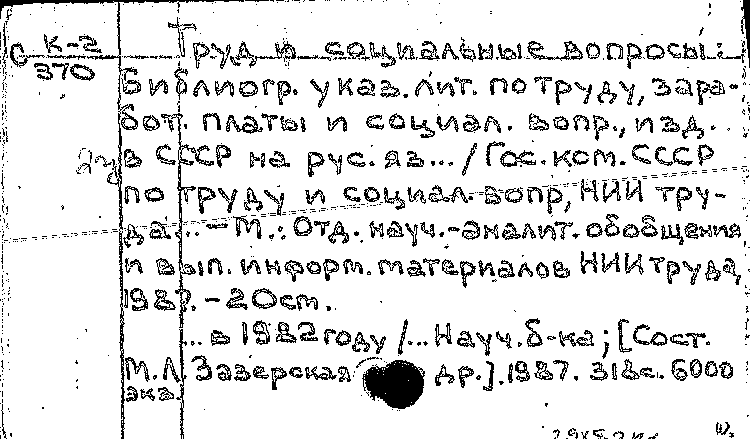 С К-2 Труд и социальные вопросы:
370 Библиогр. указ. лит. по труду, зара-
бот. платы и социал. вопр., изд.
в СССР на рус. яз... / Гос. ком. СССР
по труду и социал. вопр, НИИ тру-
да... - М.: Отд. науч.-аналит. обобщения
и вып. информ. материалов НИИ труда,
1987. - 20 см.
... в 1982 году /... Науч. б-ка; [Сост.
М.Л. Зазерская др.]. 1987. 318 с. 6000
экз.